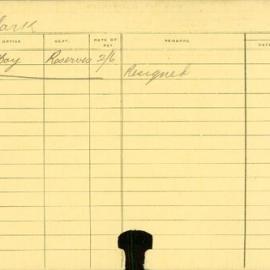 ark
OFFICE DEPT. RATE OF PAY REMARKS DATE
Bay Reserves 2/6
Resigned